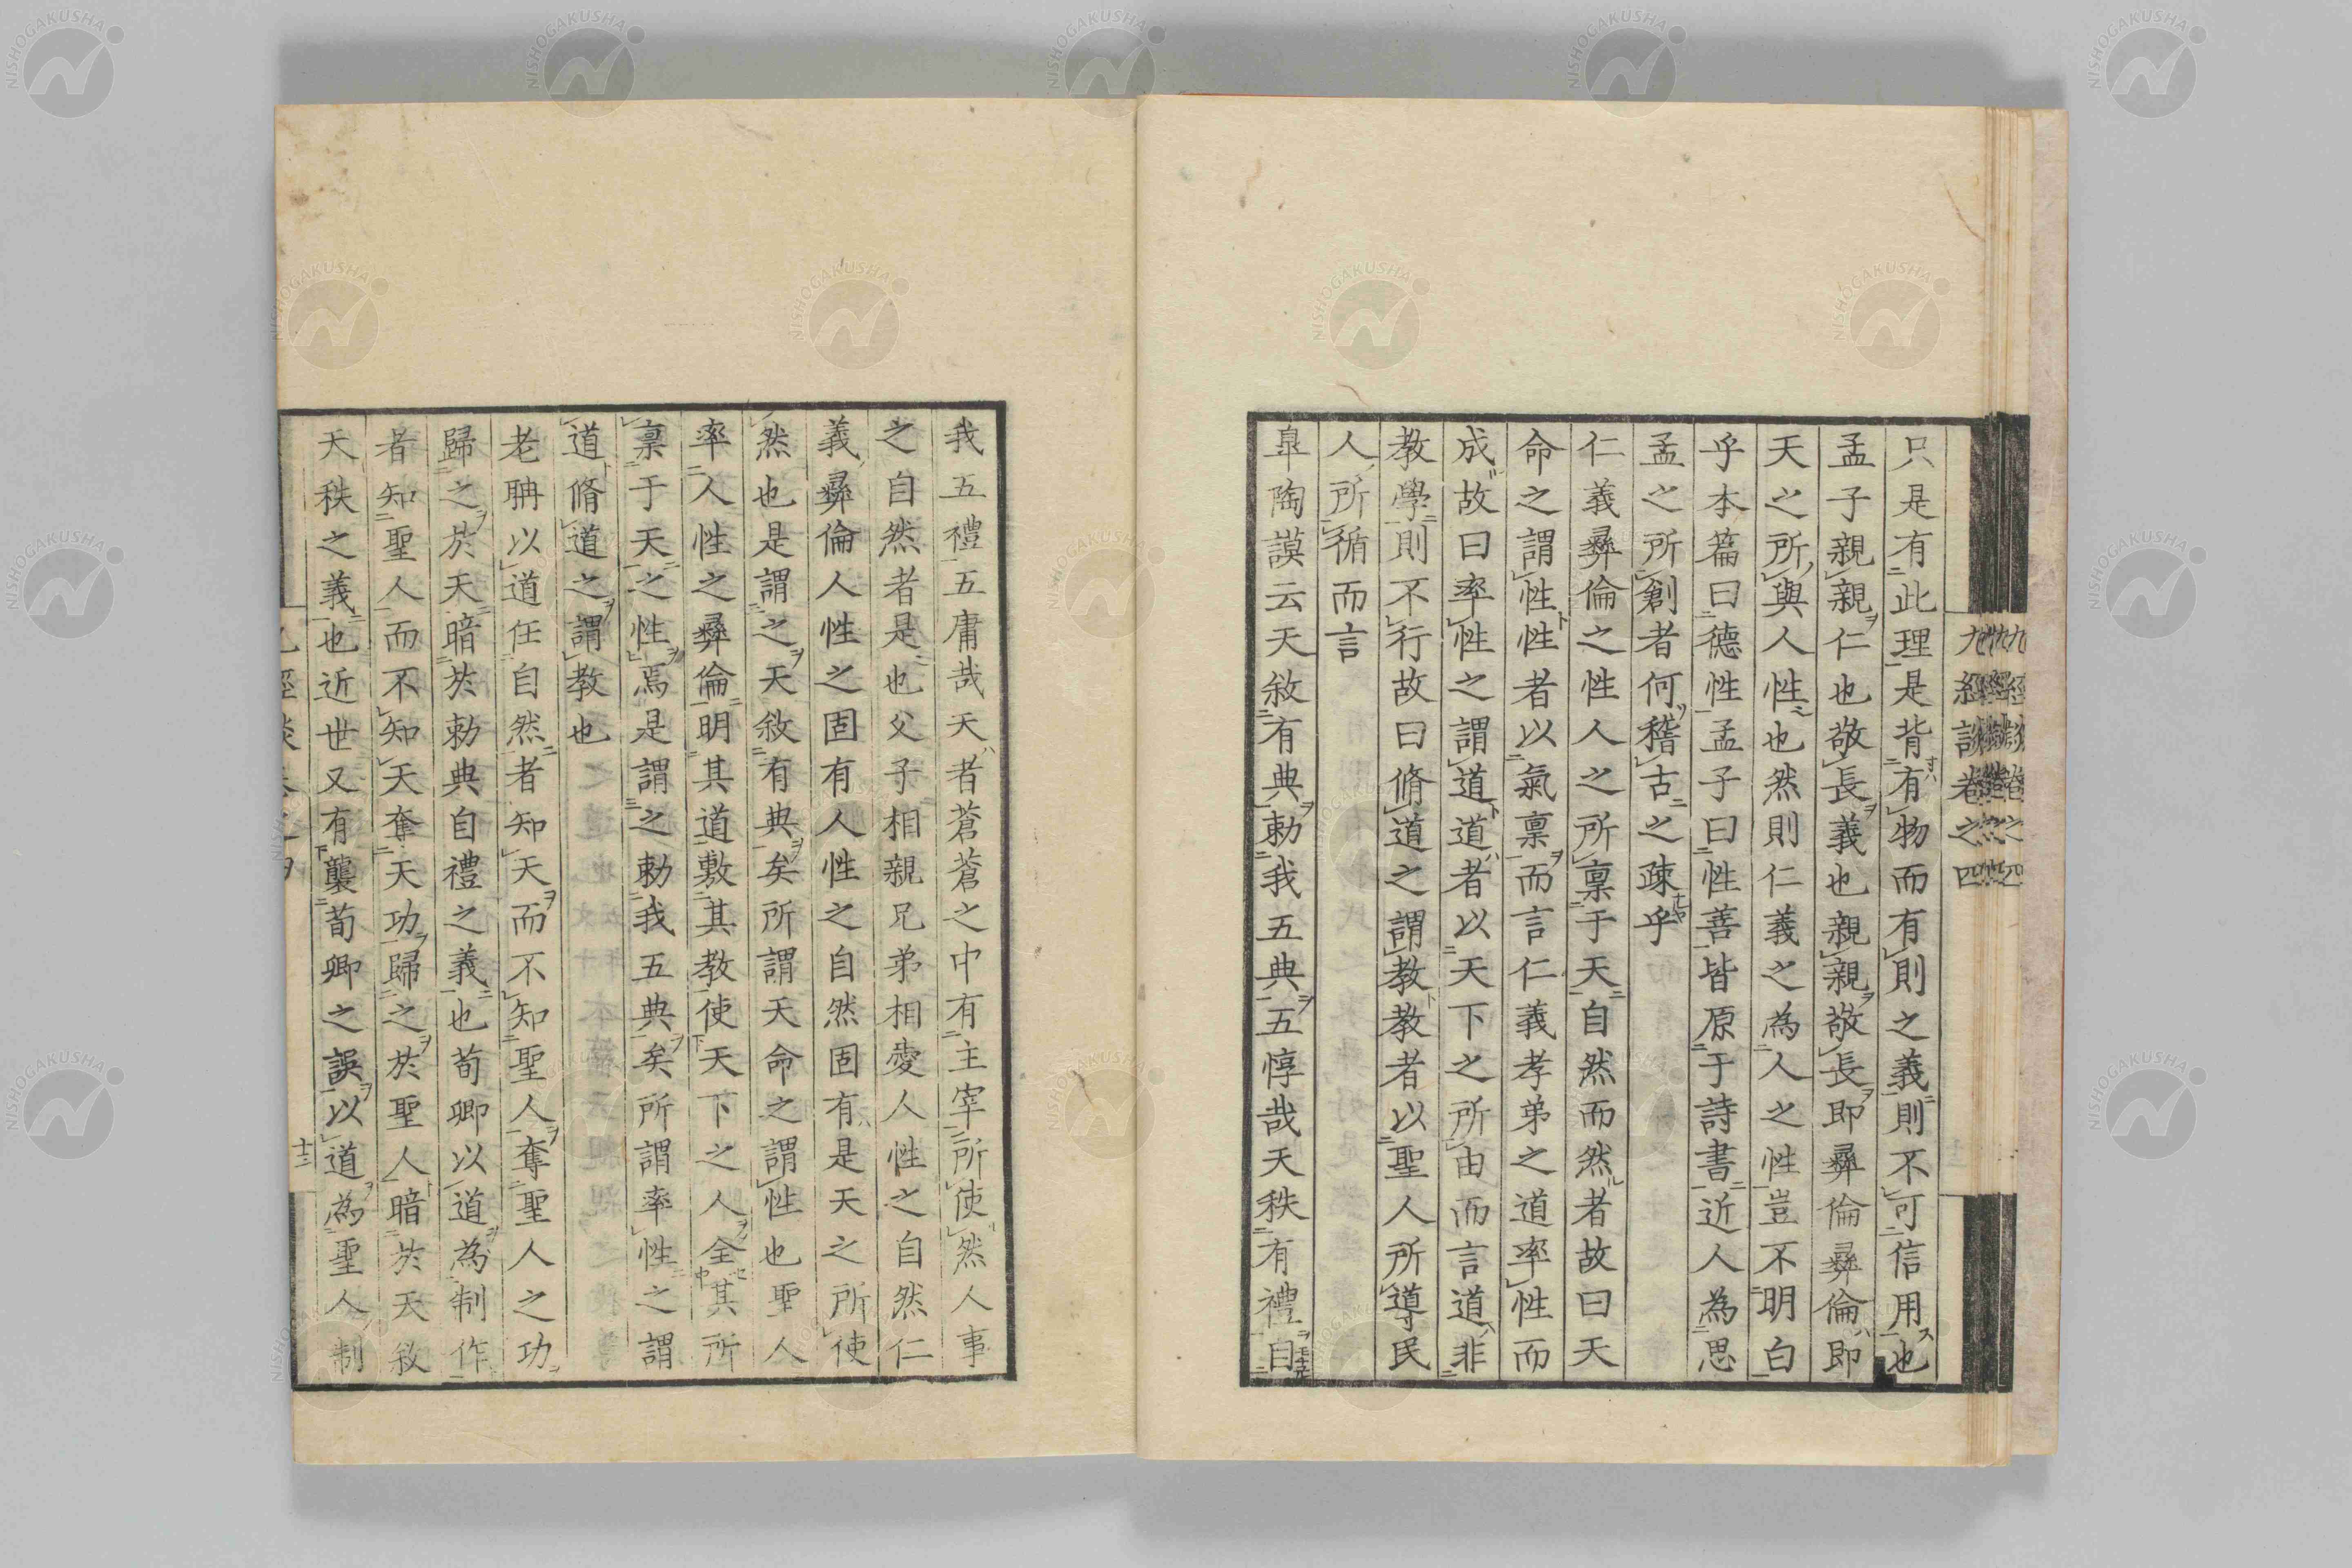 九經談卷之四
只是有此理是背有物而有則之義則不可信用也
孟子親親仁也敬長義也親親敬長即彝倫彝倫即
天之所與人性也然則仁義之為人之性豈不明白
乎本篇曰德性孟子曰性善皆原于詩書近人為思
孟之所創者何稽古之疎乎
仁義彝倫之性人之所稟于天自然而然者故曰天
命之謂性性者以氣稟而言仁義孝弟之道率性而
成故曰率性之謂道道者以天下之所由而言道非
教學則不行故曰脩道之謂教教者以聖人所導民
人所循而言
皐陶謨云天敘有典勅我五典五惇哉天秩有禮自
我五禮五庸哉天者蒼蒼之中有主宰所使然人事
之自然者是也父子相親兄弟相愛人性之自然仁
義彝倫人性之固有人性之自然固有是天之所使
然也是謂之天敘有典矣所謂天命之謂性也聖人
率人性之彝倫明其道敷其教使天下之人全其所
稟于天之性焉是謂之勅我五典矣所謂率性之謂
道脩道之謂教也
老聃以道任自然者知天而不知聖人奪聖人之功
歸之於天暗於勅典自禮之義也荀卿以道為制作
者知聖人而不知天奪天功歸之於聖人暗於天敘
天秩之義也近世又有襲荀卿之誤以道為聖人制
十三
NISHOGAKUSHA